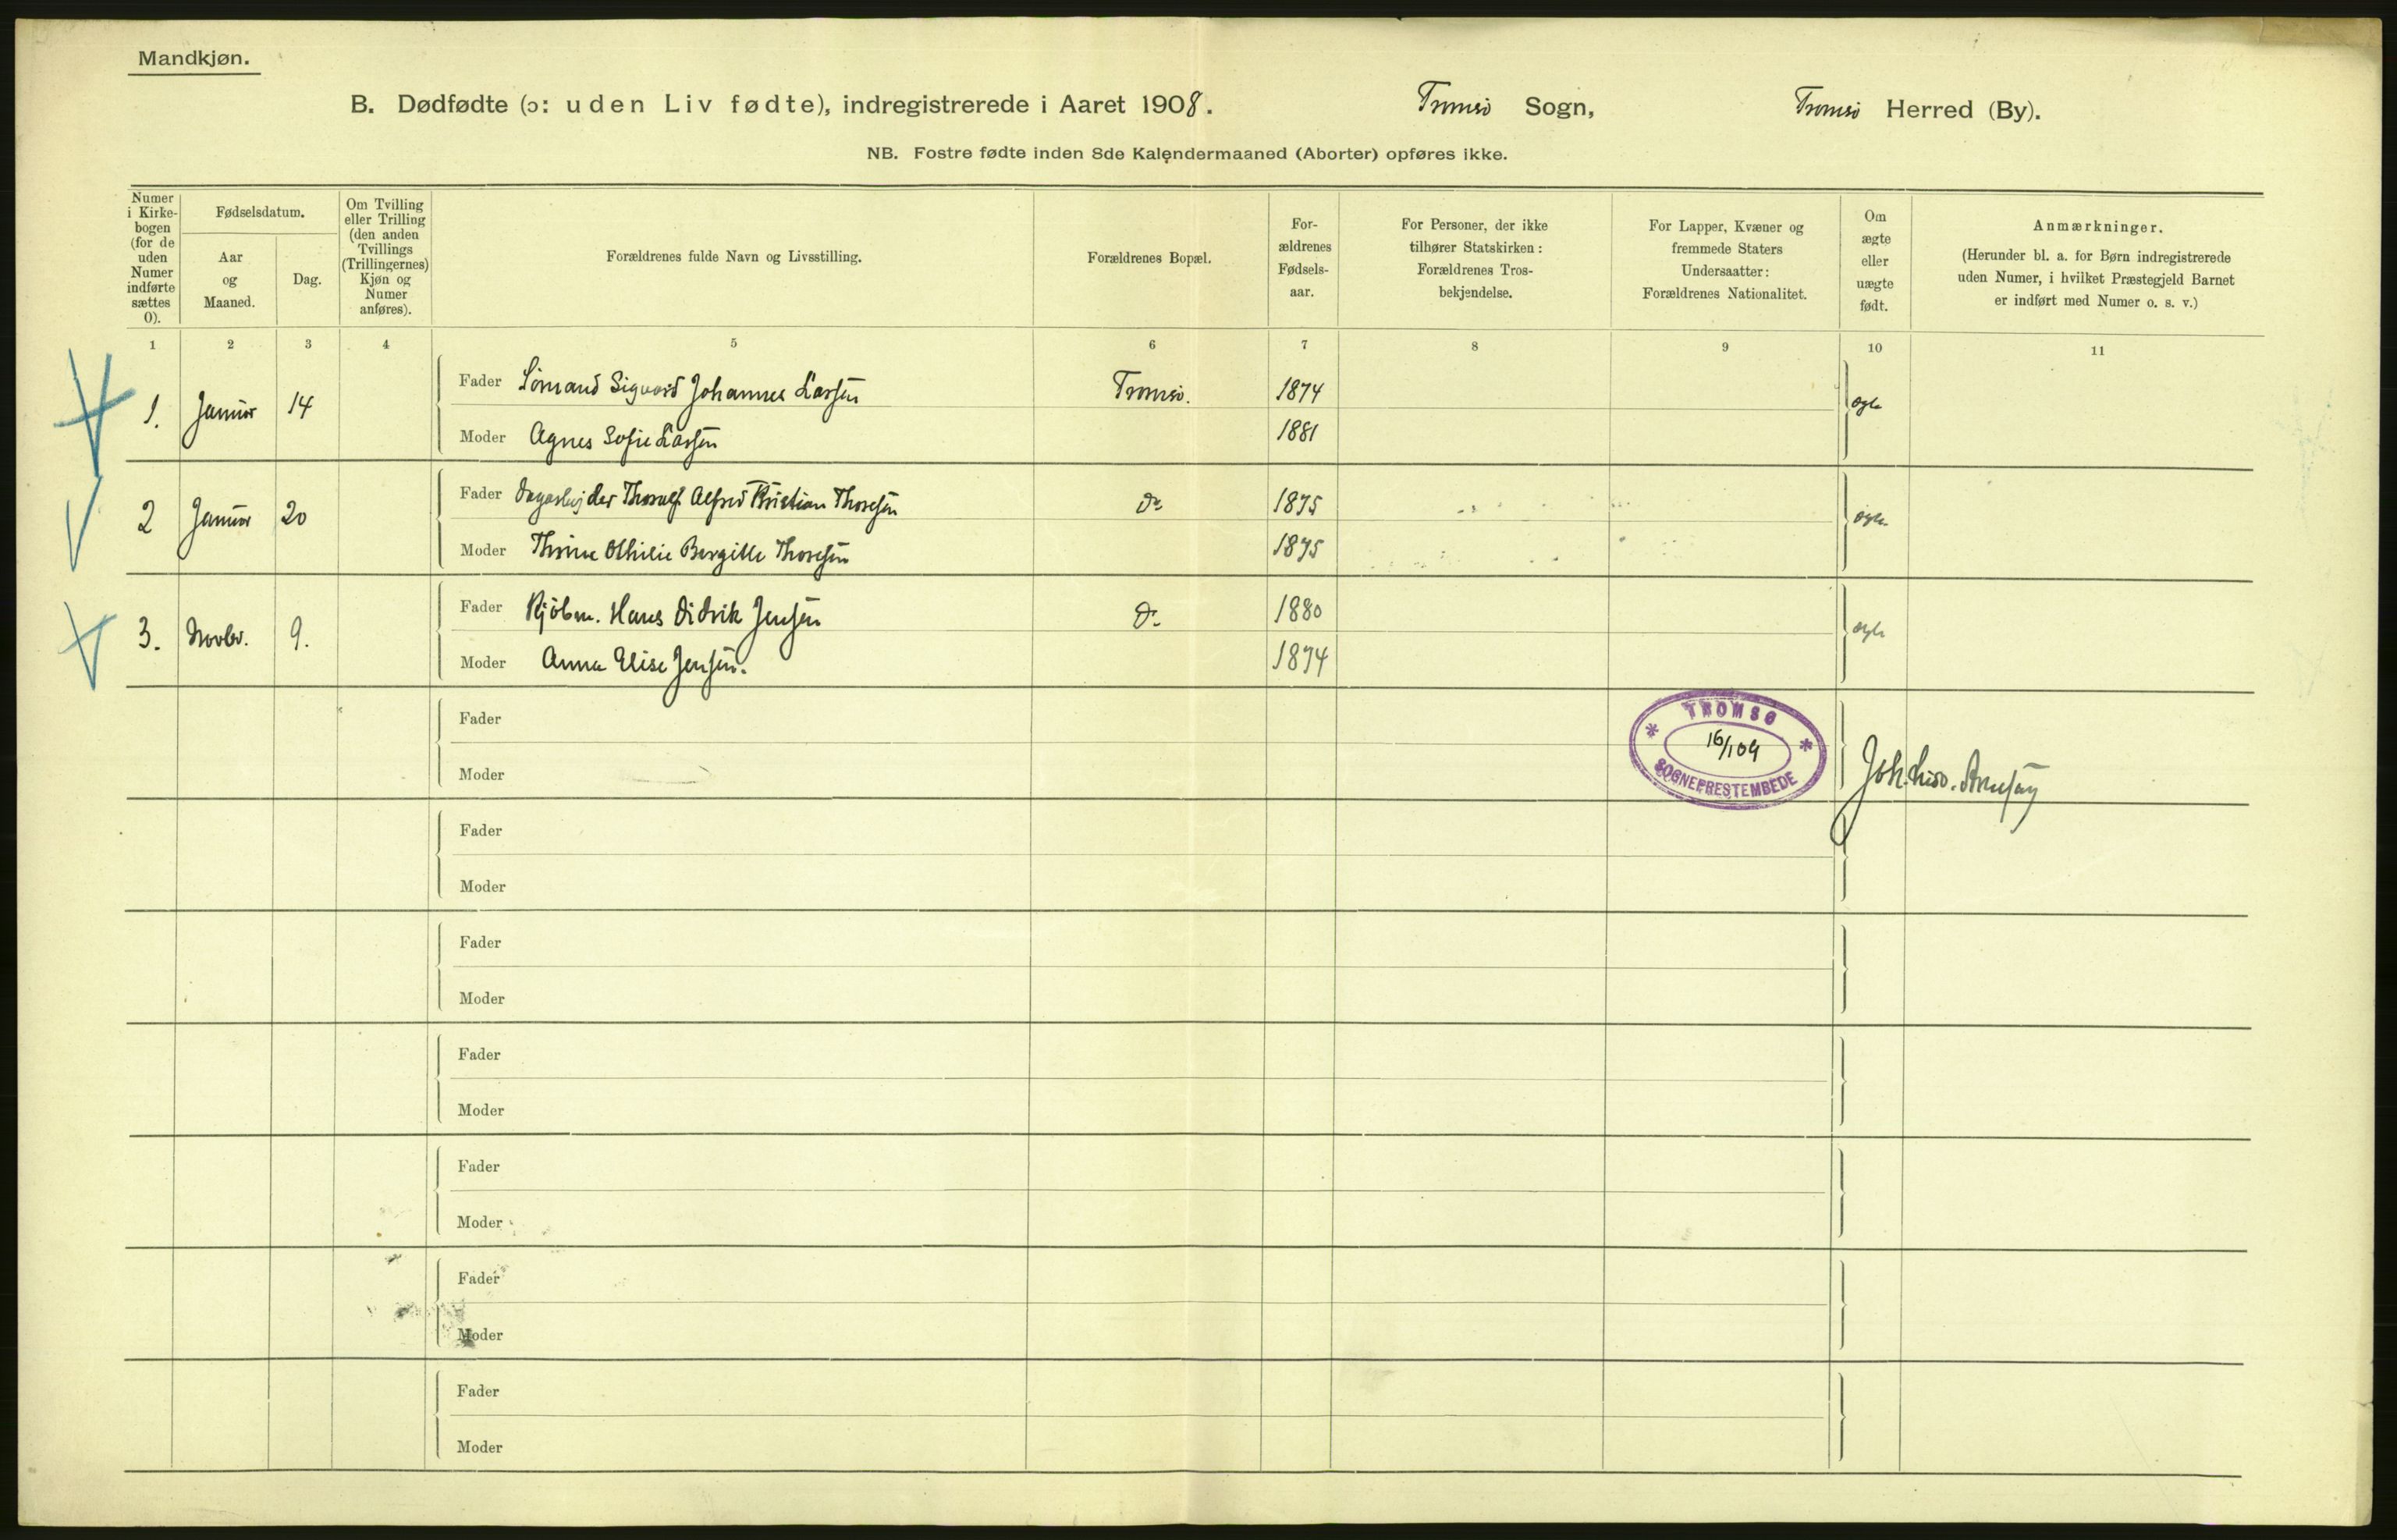 Mandkjøn.
B. Dødfødte (ɔ: uden Liv fødte), indregistrerede i Aaret 1908. Tromsø Sogn, Tromsø Herred (By).
NB. Fostre fødte inden 8de Kalendermaaned (Aborter) opføres ikke.
Numer
i Kirke-
bogen
(for de
uden
Numer
indførte
sættes
0).
Fødselsdatum.
Aar
og
Maaned.
Dag.
Om Tvilling
eller Trilling
(den anden
Tvillings
(Trillingernes)
Kjøn og
Numer
anføres).
Forældrenes fulde Navn og Livsstilling.
Forældrenes Bopæl.
For-
ældrenes
Fødsels-
aar.
For Personer, der ikke
tilhører Statskirken:
Forældrenes Tros-
bekjendelse.
For Lapper, Kvæner og
fremmede Staters
Undersaatter:
Forældrenes Nationalitet.
Om
ægte
eller
uægte
født.
Anmærkninger.
(Herunder bl. a. for Børn indregistrerede
uden Numer, i hvilket Præstegjeld Barnet
er indført med Numer o. s. v.)
1 2 3 4 5 6 7 8 9 10 11
1. Januar 14 Fader Sømand Sigvard Johannes Larssen Tromsø. 1874 ægte
Moder Agnes Sofie Larssen 1881
2 Januar 20 Fader Dagarbejder Thoralf Alfred Kristian Thoresen Do 1875 ægte
Moder Othilie Bergitte Thoresen 1875
3. Novbr. 9. Fader Kjöbm. Hans Didrik Jenssen Do 1880 ægte
Moder Anna Elise Jenssen. 1874
Fader
Moder
TROMSØ
16/1 09
SOGNEPRESTEMBEDE
Joh.
Fader
Moder
Fader
Moder
Fader
Moder
Fader
Moder
Fader
Moder
Fader
Moder